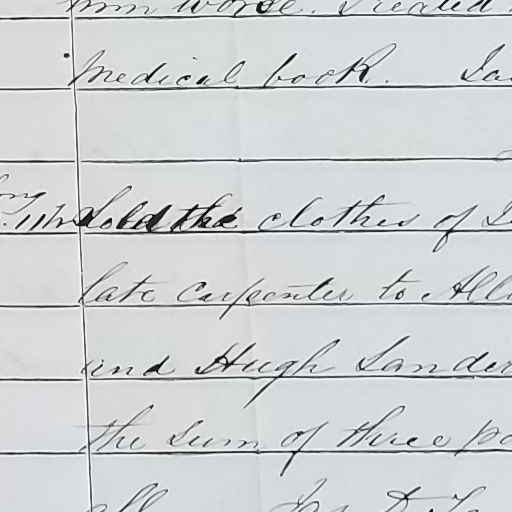 him worse. Treated
medical book.
Sold the clothes of
late carpenter to
and Hugh Sander
the sum of three
all